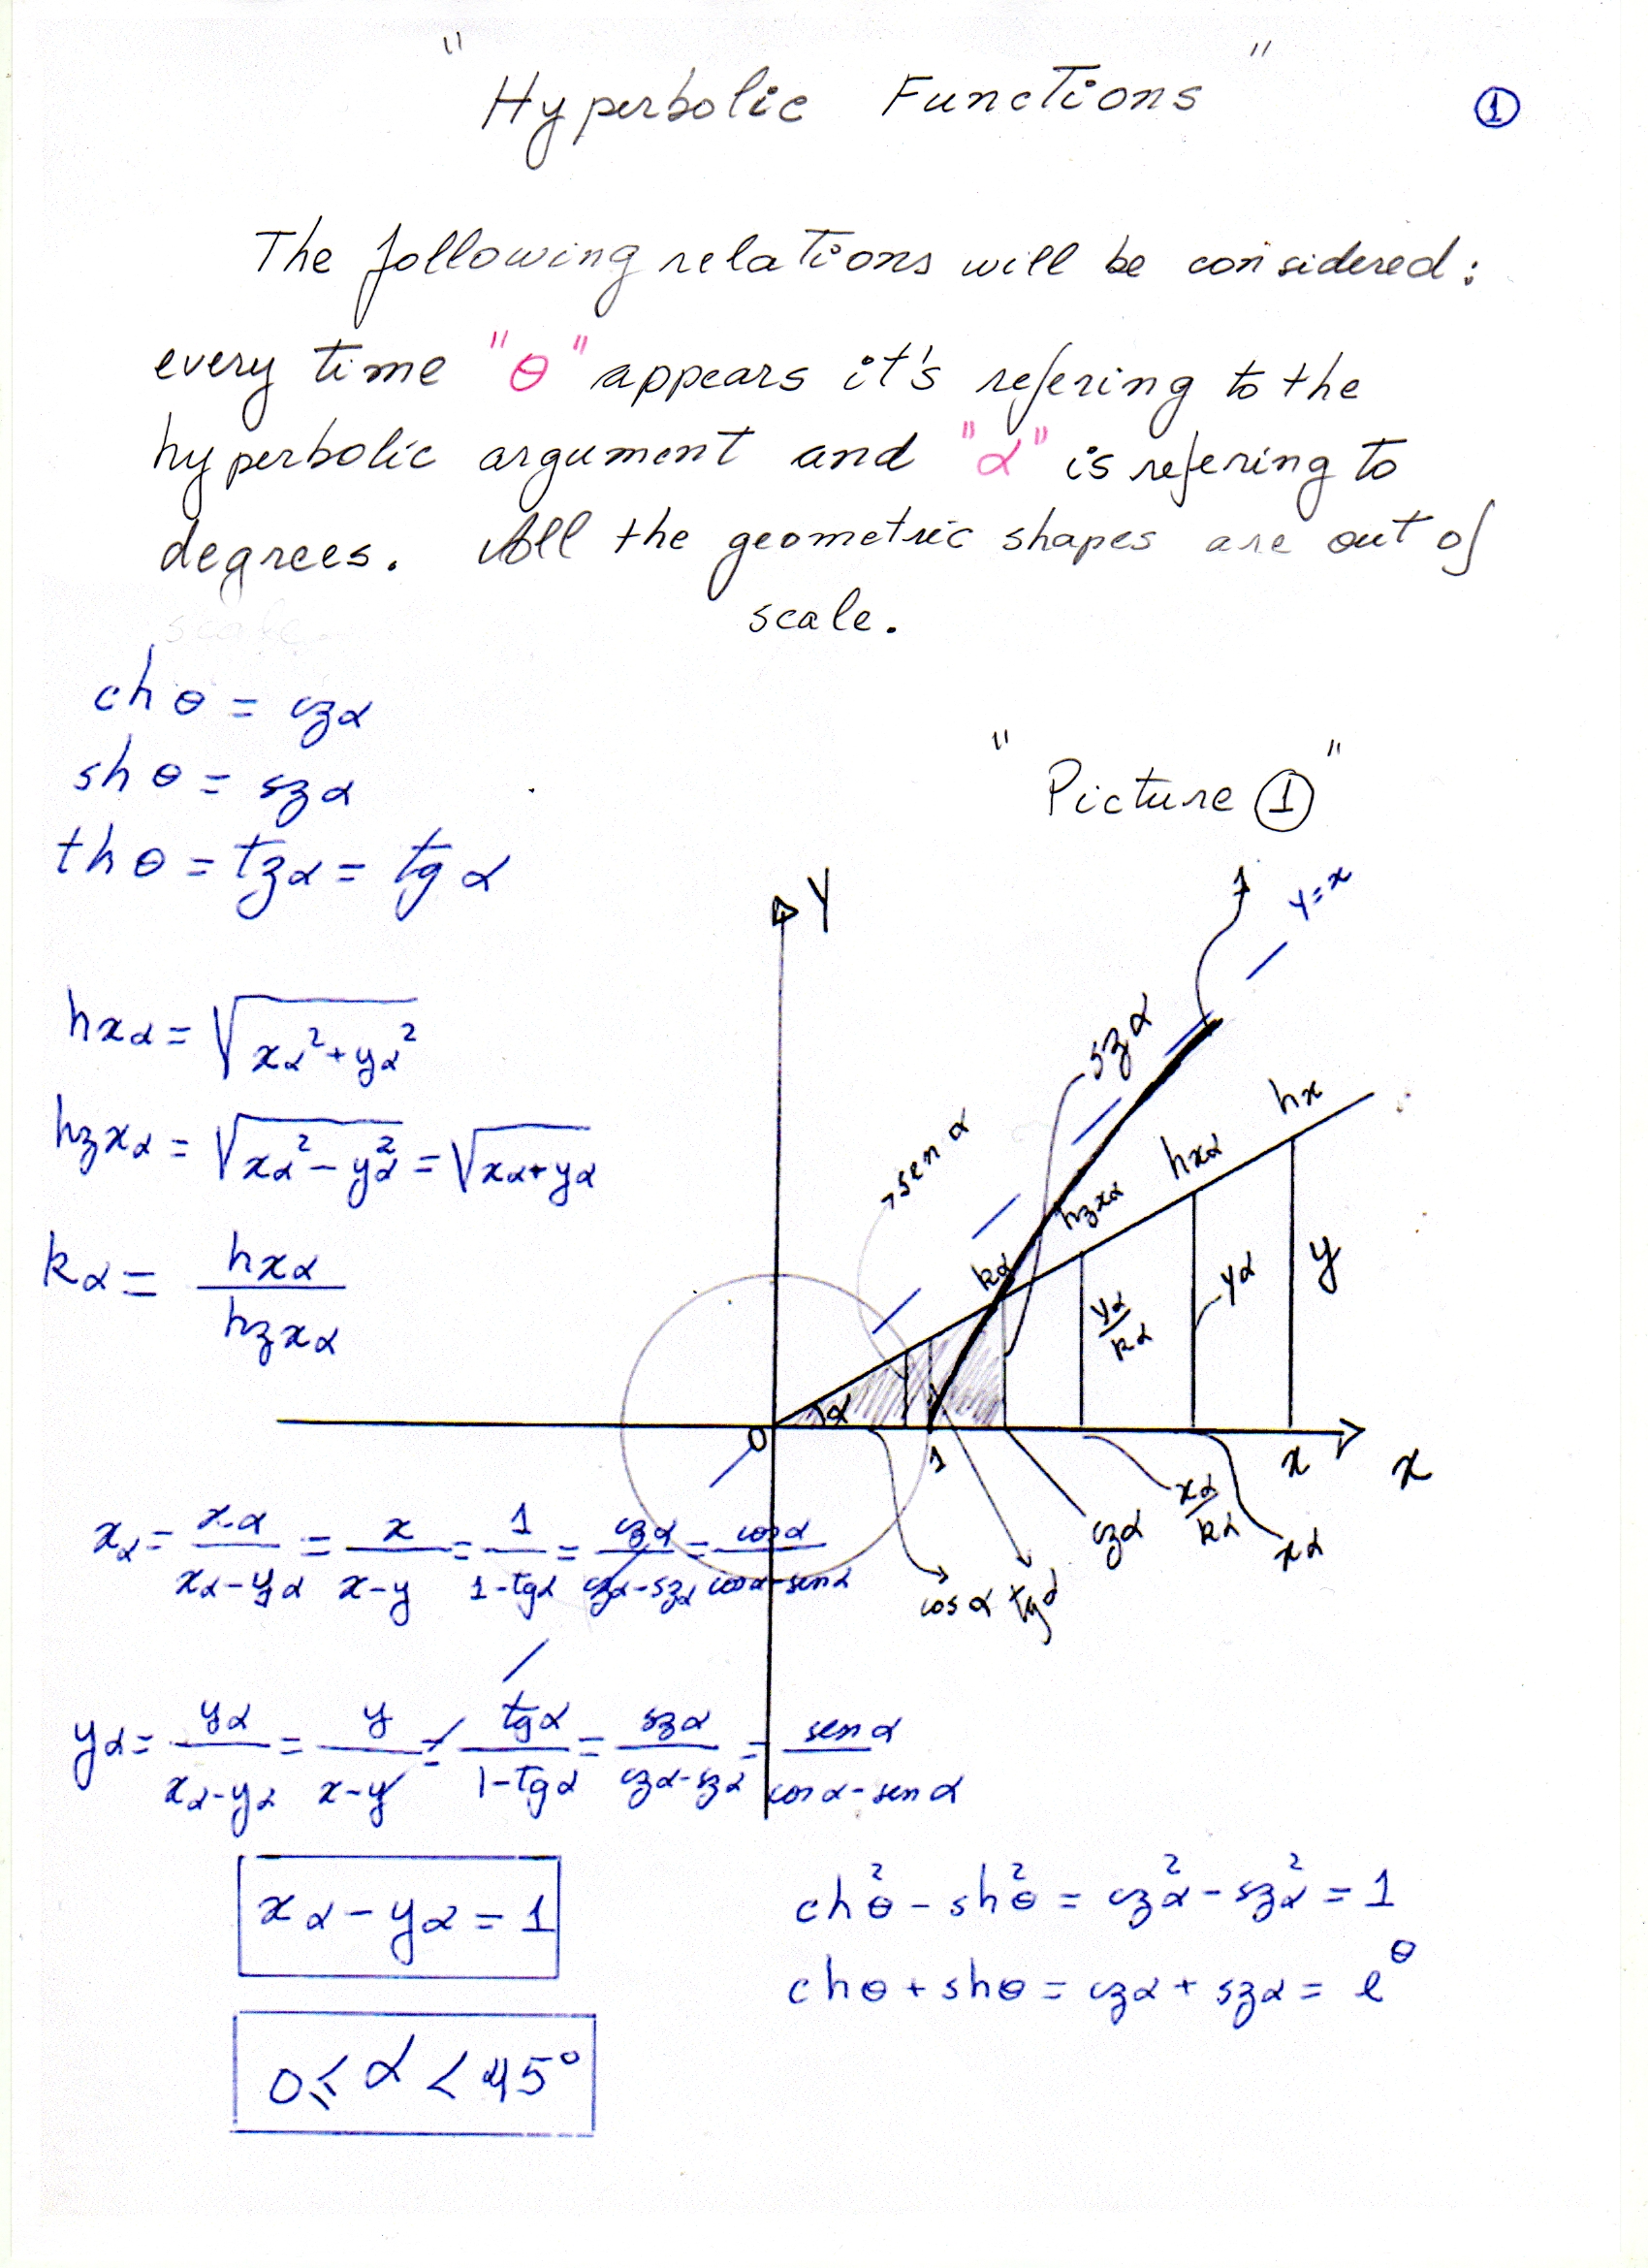 "Hyperbolic Functions"
①
The following relations will be considered:
every time "θ" appears it's refering to the
hyperbolic argument and "α" is refering to
degrees. All the geometric shapes are out of
scale.
chθ = czα
shθ = szα
thθ = tzα = tgα
"Picture ①"
hxα = √(xα² + yα²)
hzxα = √(xα² - yα²) = √(xα + yα)
kα = hxα / hzxα
Y
1
y=x
szα
sen α
hx
hxα
hzxα
kα
yα/kα
yα
y
α
0
1
x
x
czα
xα/kα
xα
cos α
tgα
xα = xα/(xα-yα) = x/(x-y) = 1/(1-tgα) = czα/(czα-szα) = cosα/(cosα-senα)
yα = yα/(xα-yα) = y/(x-y) = tgα/(1-tgα) = szα/(czα-szα) = senα/(cosα-senα)
xα - yα = 1
0 ≤ α < 45°
ch²θ - sh²θ = cz²α - sz²α = 1
chθ + shθ = czα + szα = e^θ